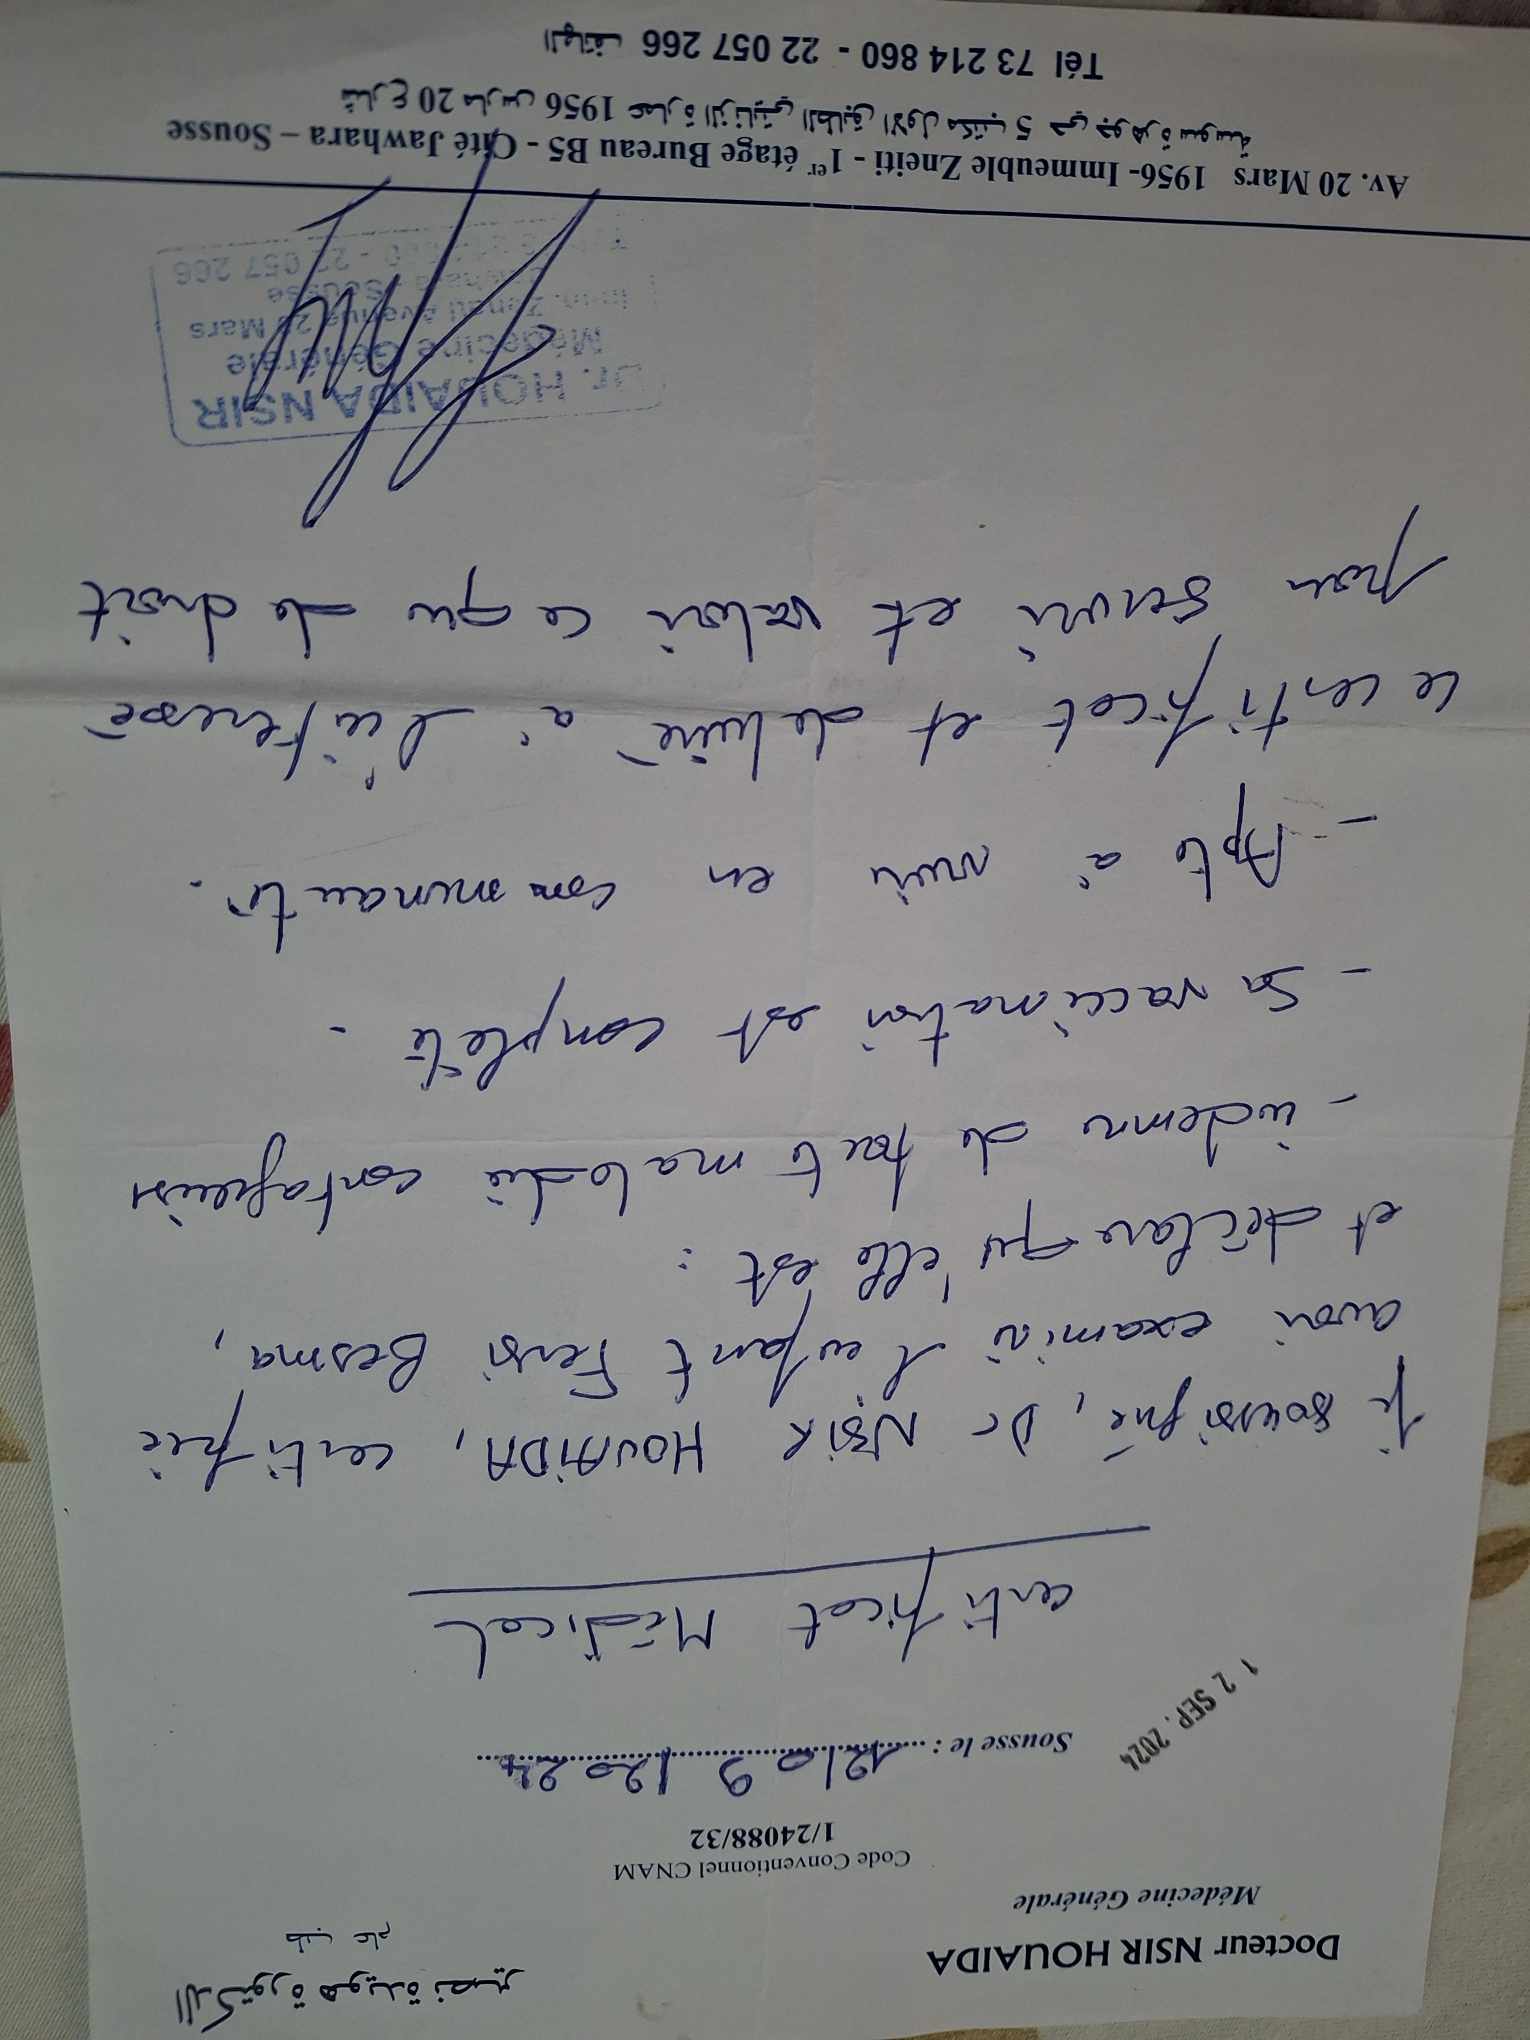 Docteur NSIR HOUAIDA
الدكتورة هويدة نصير
Médecine Générale
طب عام
Code Conventionnel CNAM
1/24088/32
Sousse le : 12/09/2024
12 SEP. 2024
Certificat Médical
Je soussigné, Dr NSIR HOUAIDA, certifie
avoir examiné l'enfant Fersi Besma,
et déclare qu'elle est :
- indemne de toute maladie contagieuse
- Sa vaccination est complète.
- Apte à vivre en communauté.
Ce certificat est délivré à l'intéressé
pour servir et valoir ce que de droit
Dr. HOUAIDA NSIR
Médecine Générale
Imm. Zneiti Avenue 20 Mars
Jawhara Sousse
22 057 266
Av. 20 Mars 1956- Immeuble Zneiti - 1er étage Bureau B5 - Cité Jawhara – Sousse
شارع 20 مارس 1956 عمارة الزناتي الطابق الاول مكتب 5 حي جوهرة سوسة
Tél 73 214 860 - 22 057 266 الهاتف